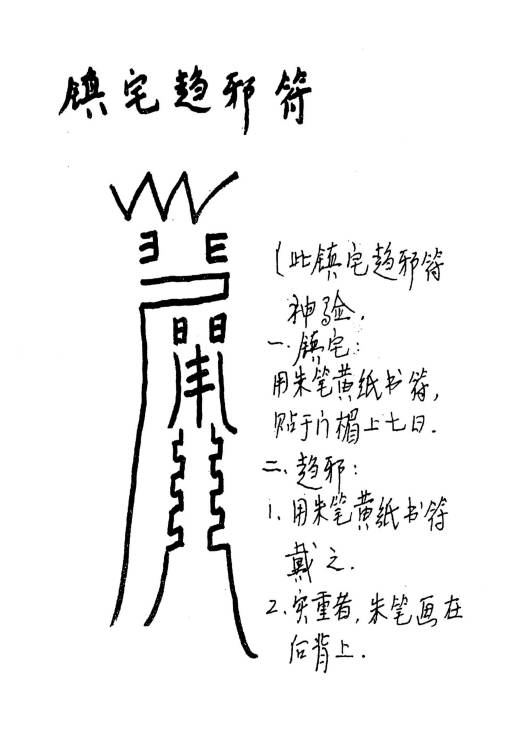 镇宅趋邪符
(此镇宅趋邪符
神验.
一.镇宅:
用朱笔黄纸书符,
贴于门楣上七日.
二.趋邪:
1.用朱笔黄纸书符
戴之.
2.实重者,朱笔画在
后背上.